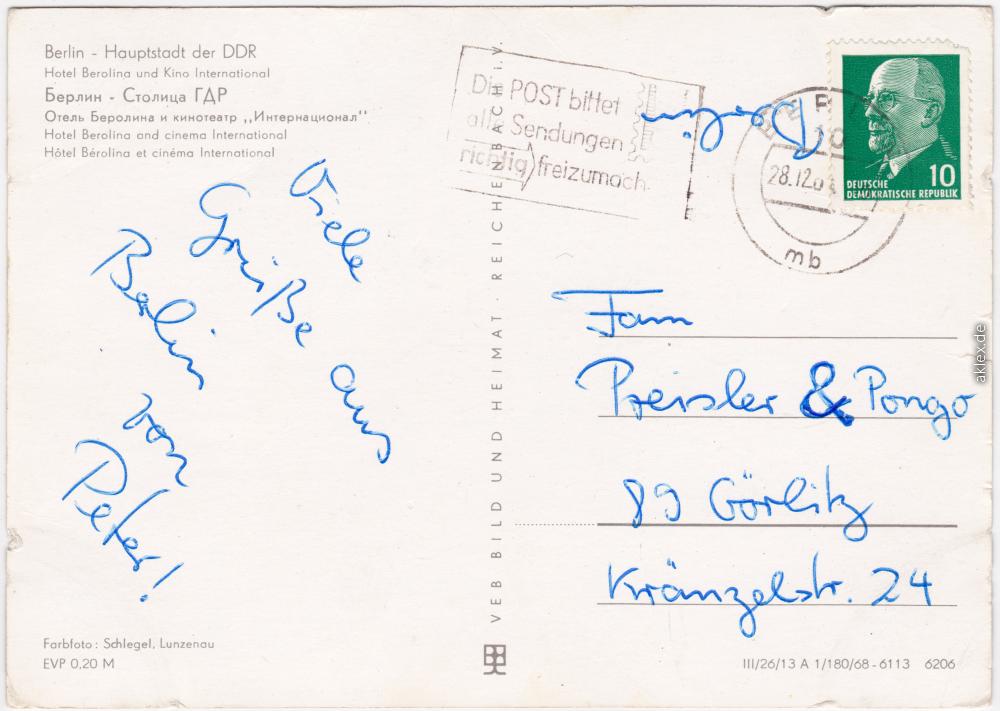 Berlin - Hauptstadt der DDR
Hotel Berolina und Kino International
Берлин - Столица ГДР
Отель Беролина и кинотеатр ,,Интернационал"
Hotel Berolina and cinema International
Hôtel Bérolina et cinéma International
Viele
Grüße aus
Berlin
von
Peter!
Farbfoto: Schlegel, Lunzenau
EVP 0,20 M
VEB BILD UND HEIMAT · REICHENBACH i. V.
Die POST bittet
alle Sendungen
richtig freizumach
BERLIN
10
28.12.
mb
10
DEUTSCHE
DEMOKRATISCHE REPUBLIK
Fam
Preisler & Pongo
89 Görlitz
Kränzelstr. 24
III/26/13 A 1/180/68-6113 6206
aklex.de